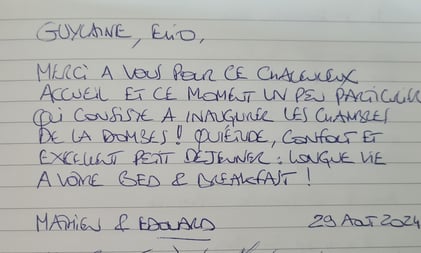 GUYLAINE, ENZO,
MERCI A VOUS POUR CE CHALEUREUX
ACCUEIL ET CE MOMENT UN PEU PARTICULIER
QUI CONSISTE A INAUGURER LES CHAMBRES
DE LA DOMBES ! QUIÉTUDE, CONFORT ET
EXCELLENT PETIT DÉJEUNER : LONGUE VIE
A VOTRE BED & BREAKFAST !
MATHIEU & EDOUARD 29 AOUT 2024